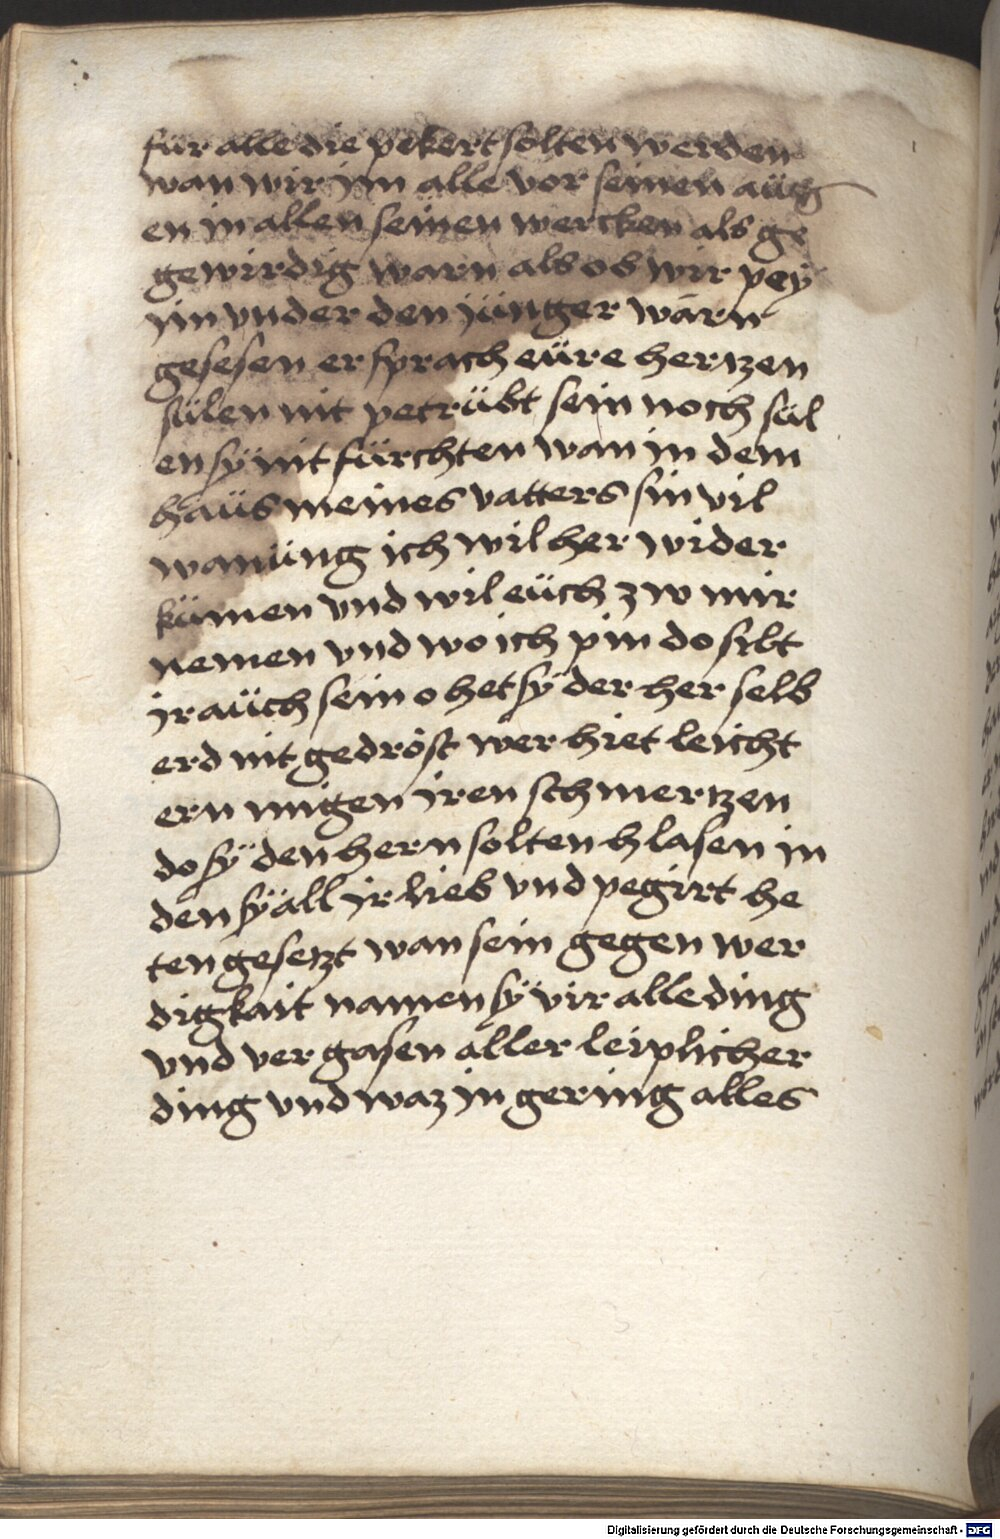 für alle die pekert solten werden
wan wir jm alle vor seinen aüg
en in allen seinen wercken als ge
gewirdig warn als ob wir pey
jm vnder den jünger wärn
gesesen er sprach eüre hertzen
sülen nit petrübt sein noch sül
en sÿ nit fürchten wan in dem
haüs meines vatters sin vil
wanüng ich wil her wider
kümen vnd wil eüch zw mir
nemen vnd wo ich pin do silbt
jr aüch sein o het sÿ der her selb
erd nit gedröst wer hiet leicht
ern migen jren schmertzen
do sÿ den hern solten hlasen in
den sÿ all jr lieb vnd pegirt he
ten gesetzt wan sein gegen wer
digkait namen sÿ vir alle ding
vnd ver gasen aller leiplicher
ding vnd waz jn gering alles
Digitalisierung gefördert durch die Deutsche Forschungsgemeinschaft - DFG